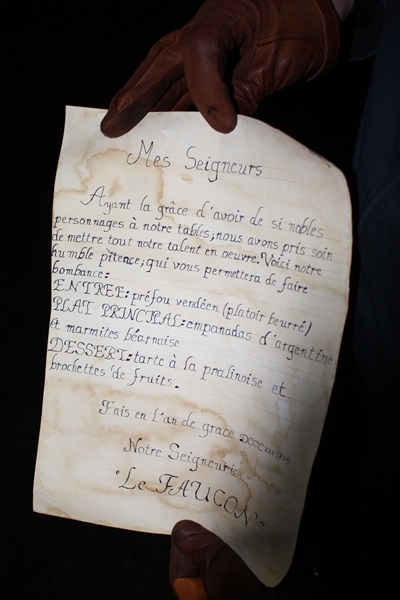 Mes Seigneurs
Ayant la grâce d'avoir de si nobles
personnages à notre tables, nous avons pris soin
de mettre tout notre talent en oeuvre. Voici notre
humble pitence, qui vous permettera de faire
bombance:
ENTREE: préfou vendéen (platoir beurré)
PLAT PRINCIPAL: empanadas d'argentine
et marmites béarnaise
DESSERT: tarte à la pralinoise et
brochettes de fruits.
Fais en l'an de grace
Notre Seigneurie
"Le FAUCON"